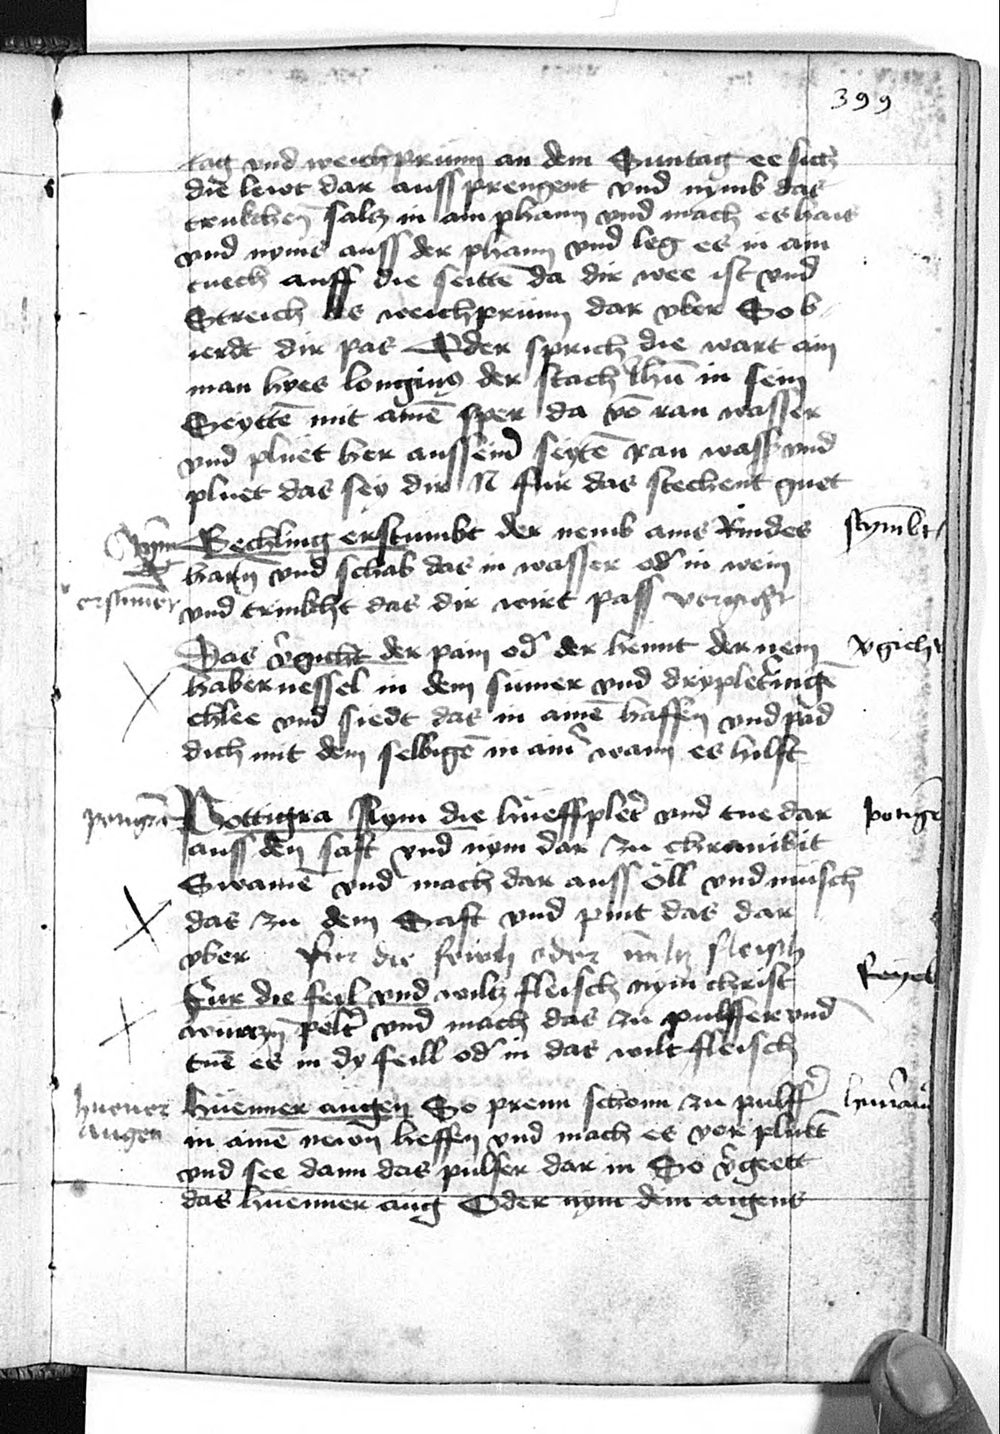 399
tag vnd weichprunn an dem Suntag ee sich
die lewt dar auss sprengent vnd nymb das
trukchen salcz in ain phann vnd mach es hais
vnd nyms auss der phann vnd leg es in ain
tuech auff die seittē da dir wee ist vnd
Streich des weichprunn dar vber So b
ierdt dir pas Oder sprich die wart ain
man hyes longinus der stach Jhū in sein
Seyttē mit ainē sper da vō ran wasser
vnd pluet her auss seinr seytē ran wasser vnd
pluet das sey dir N für das stechent guet
Bechling erstumbt der nemb ains Rindes
stymbt
harn vnd schab das in wasser od in wein
erstumēt
vnd trinkht das dir wirt pass vergicht
Das vgicht der pain od der hennt der nem
vgicht
habernessel in dem sumer vnd drypletringē
chlee vnd siedt das in ainē haffen vnd pad
dich mit dem selbigē in ainr wann es hilft
potigra
Pottigra Nym die hueffplet vnd tue dar
potigr
auss den saft vnd nym dar zu chranibit
Swamē vnd mach dar auss öll vnd misch
das zu dem Saft vnd pint das dar
vber für die feiwl oder wilcz fleisch
Für die feyl vnd wilcz fleisch nym christ
feyel
wurczn pelt vnd mach das zu pulffer vnd
tuē es in dy feill od in das wilt fleisch
huener
augen
Huenner augen So prenn schonn zu pulff
in ainē newn heffen vnd mach es vor plutt
vnd see dann das pulfer dar in So vgeett
das huenner aug Oder nym dem augens